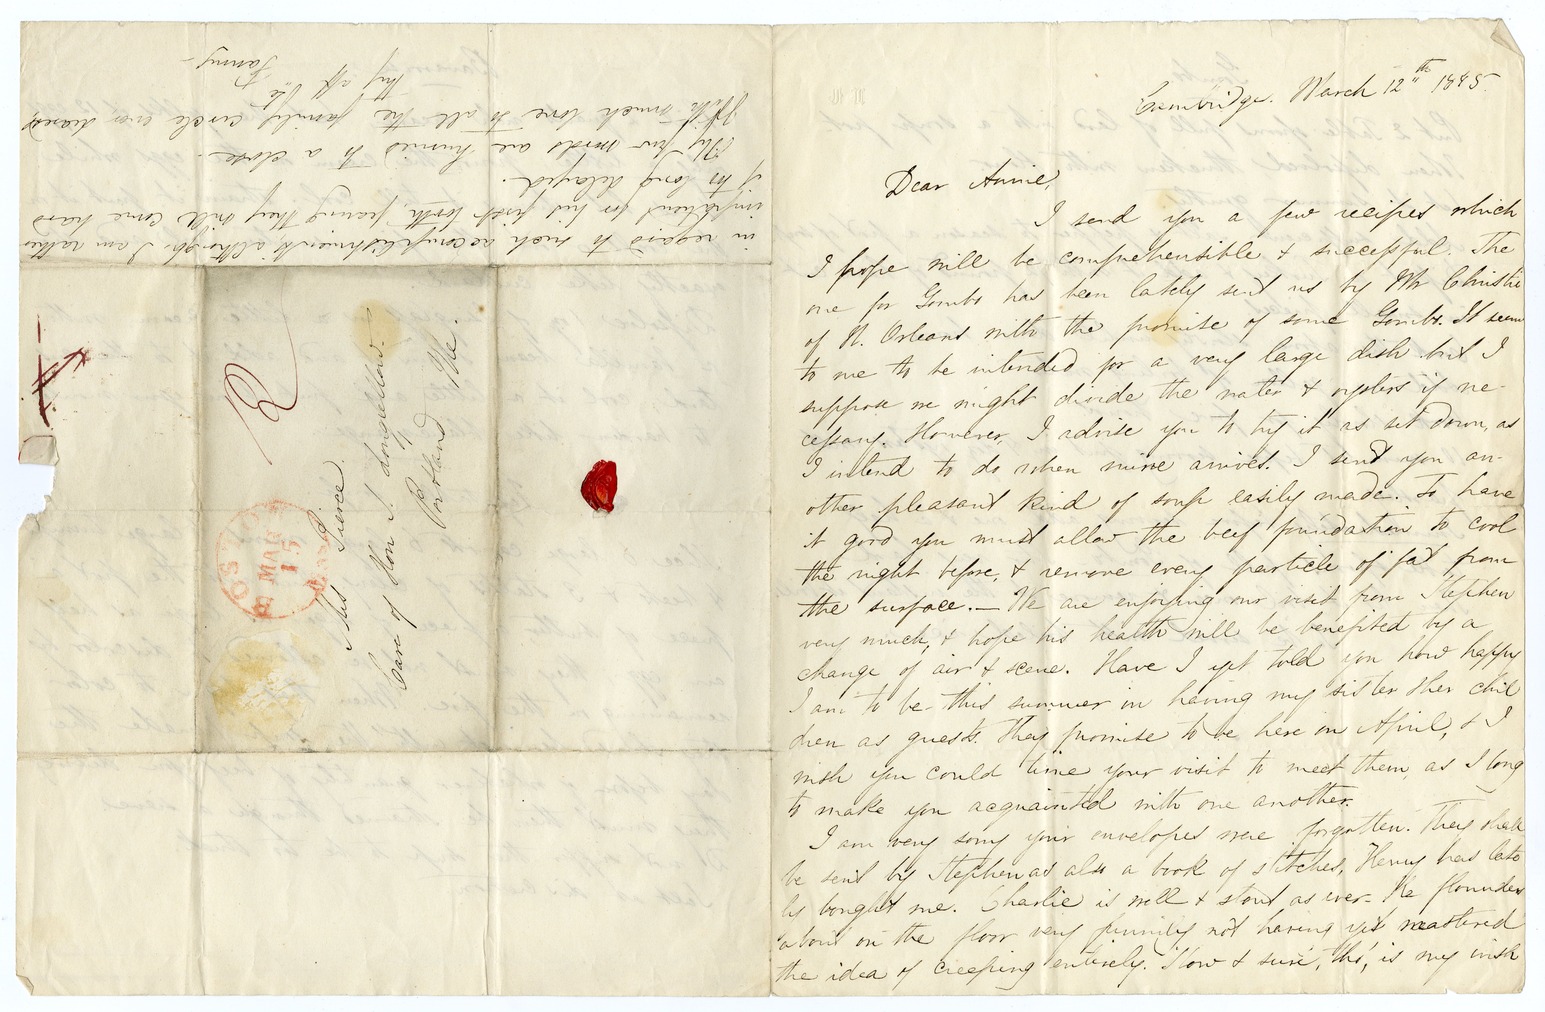 Cambridge. March 12th 1845.
Dear Annie,
I send you a few recipes which
I hope will be comprehensible & successful. The
one for Gombo has been lately sent us by Mr Christie
of N. Orleans with the promise of some Gombo. It seems
to me to be intended for a very large dish but I
suppose we might divide the water & oysters if ne-
cessary. However, I advise you to try it as set down, as
I intend to do when mine arrives. I send you an-
other pleasant kind of soup easily made. To have
it good you must allow the beef foundation to cool
the night before, & remove every particle of fat from
the surface. — We are enjoying our visit from Stephen
very much, & hope his health will be benefited by a
change of air & scene. Have I yet told you how happy
I am to be this summer in having my sister & her chil
dren as guests. They promise to be here in April, & I
wish you could time your visit to meet them, as I long
to make you acquainted with one another.
I am very sorry your envelopes were forgotten. They shall
be sent by Stephen as also a book of stitches, Henry has late
ly bought me. Charlie is well & stout as ever. He flounders
about on the floor very funnily not having yet mastered
the idea of creeping entirely. Slow & sure, tho', is my wish
in regard to such accomplishments although I am rather
impatient for his first tooth, fearing they will come hard
if too long delayed.
My few words are hurried to a close.
With much love to all the family circle ever dearest
thy aff
Fanny —
Miss Pierce.
Care of Hon S. Longfellow.
Portland Me.
BOSTON
MAR
15
Mass